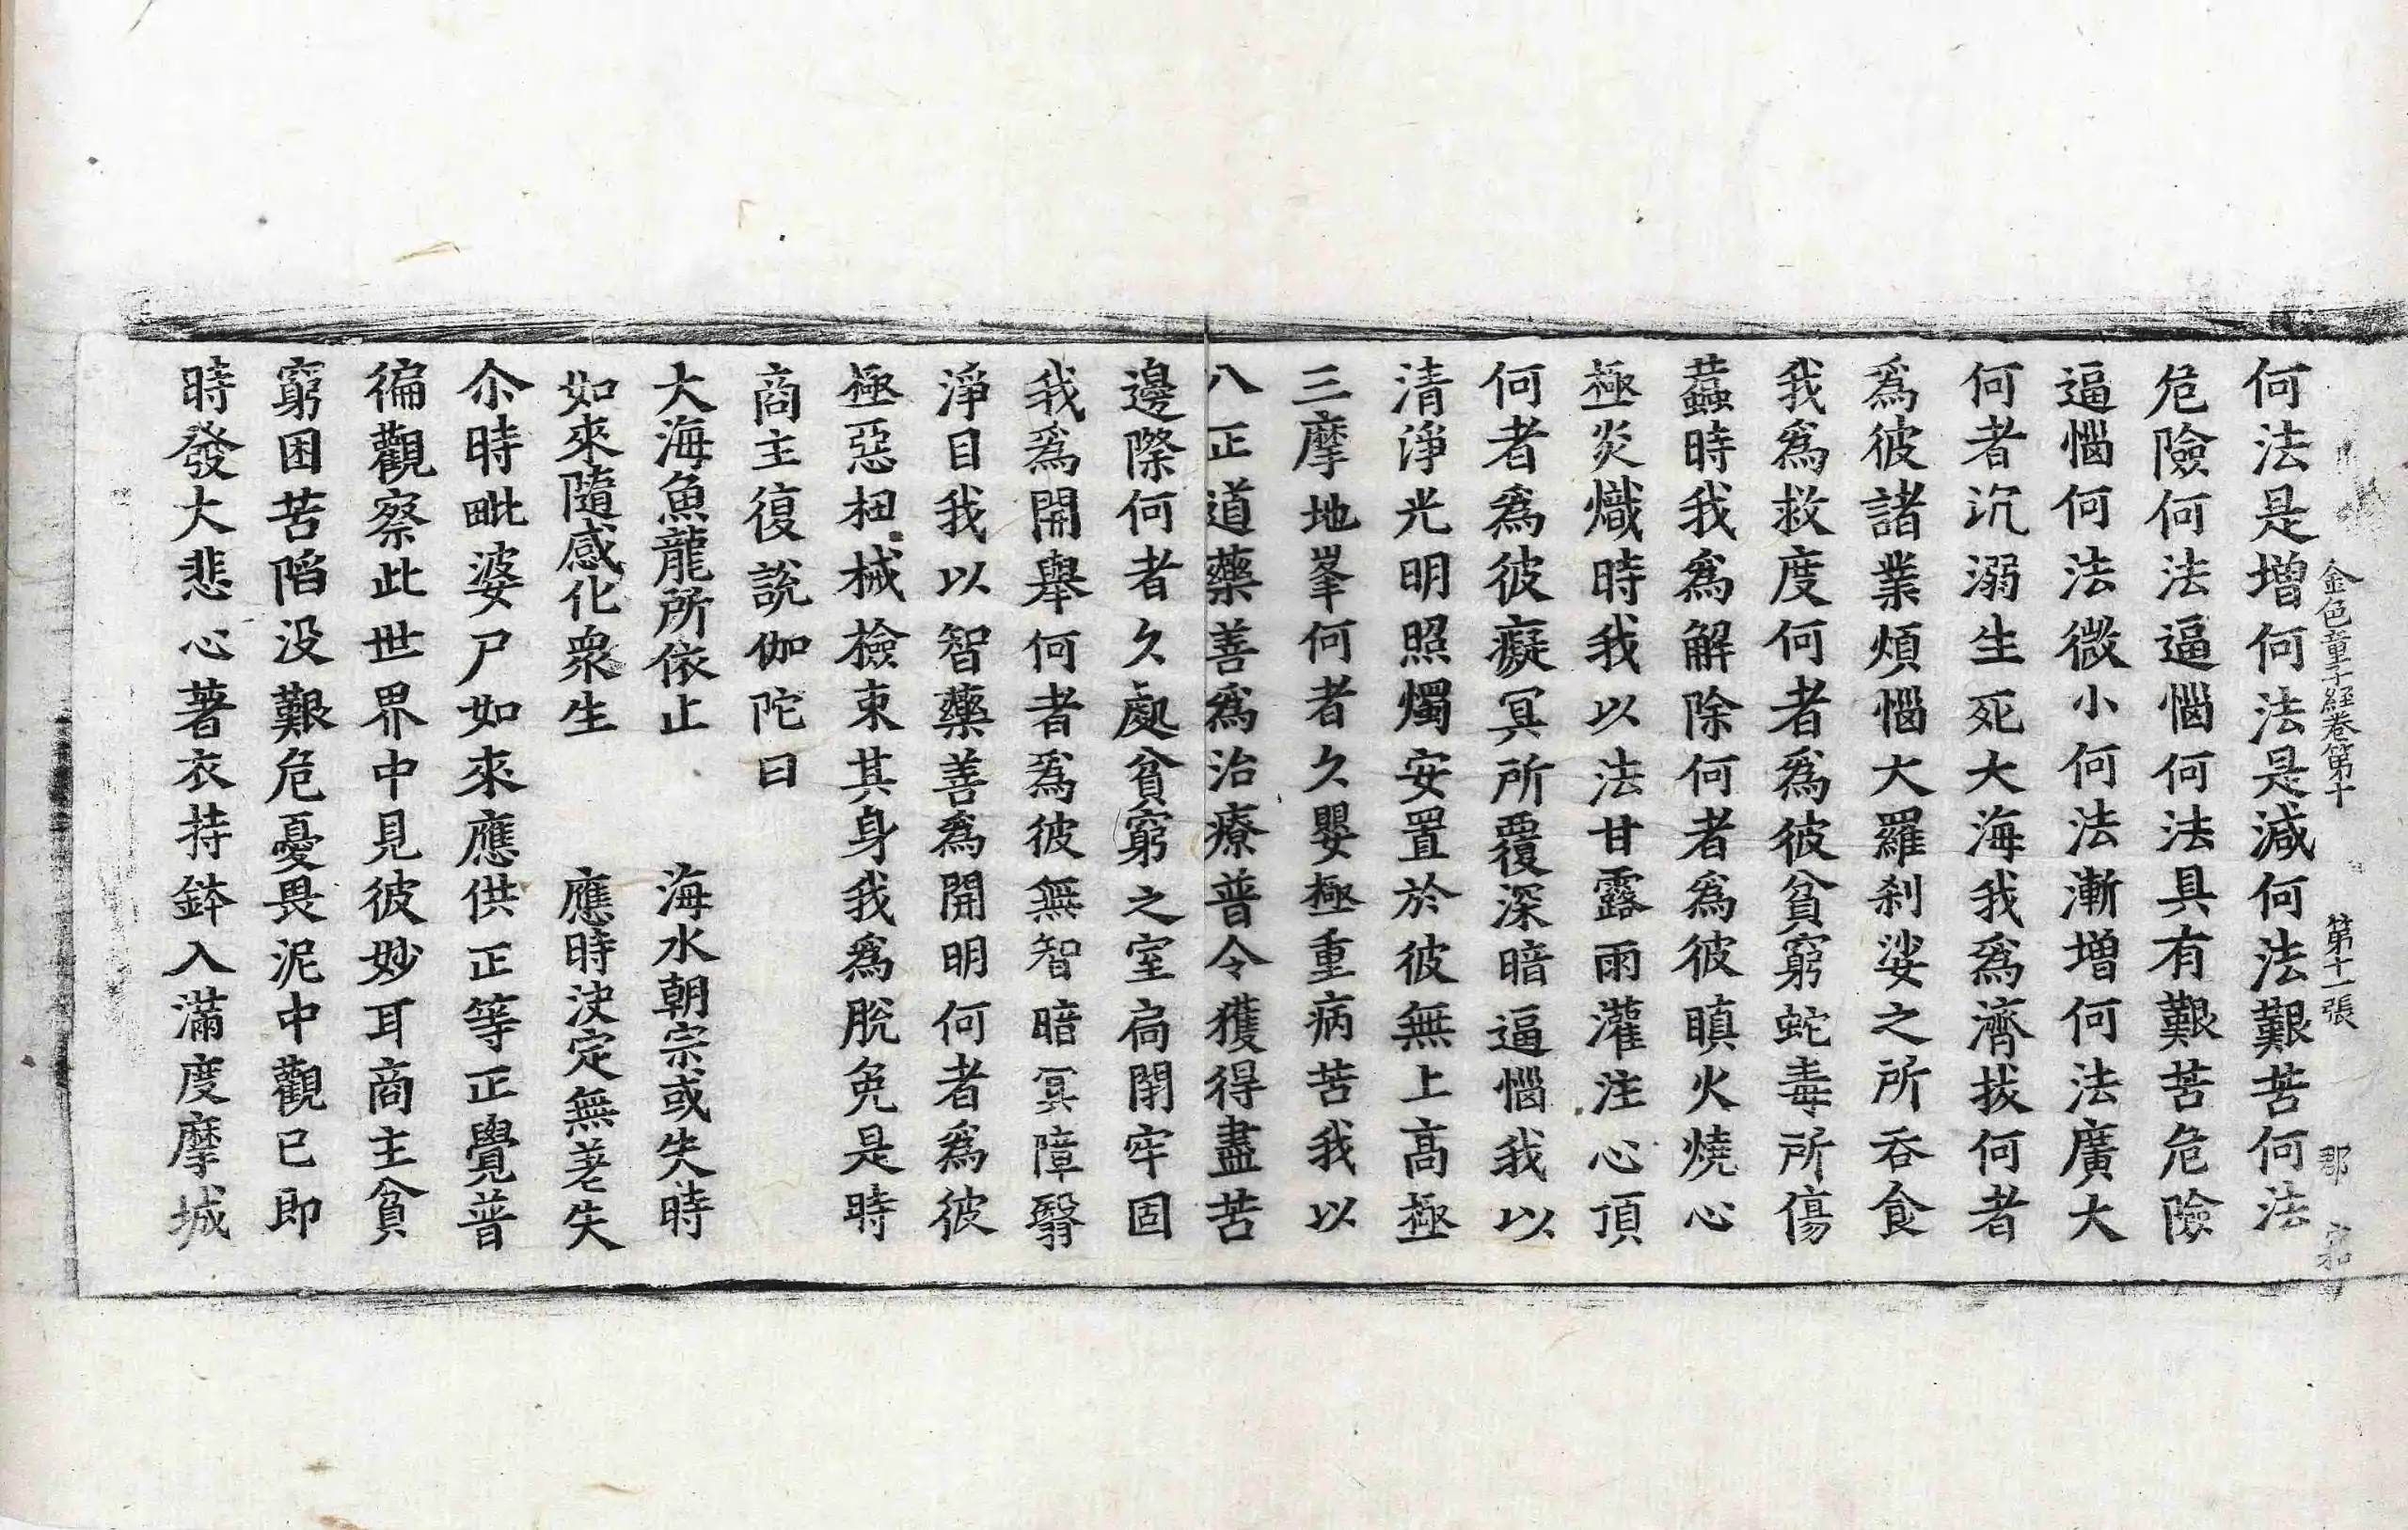 金色童子經卷第十 第十一張 那
何法是增何法是減何法艱苦何法
危險何法逼惱何法具有艱苦危險
逼惱何法微小何法漸增何法廣大
何者沉溺生死大海我爲濟拔何者
爲彼諸業煩惱大羅刹娑之所吞食
我爲救度何者爲彼貧窮蛇毒所傷
蟲時我爲解除何者爲彼瞋火燒心
極炎熾時我以法甘露雨灌注心頂
何者爲彼癡冥所覆深暗逼惱我以
清淨光明照燭安置於彼無上高極
三摩地峯何者久嬰極重病苦我以
八正道藥善爲治療普令獲得盡苦
邊際何者久處貧窮之室扃閉牢固
我爲開舉何者爲彼無智暗冥障翳
淨目我以智藥善爲開明何者爲彼
極惡杻械檢束其身我爲脫免是時
商主復說伽陀曰
大海魚龍所依止 海水朝宗或失時
如來隨感化衆生 應時決定無差失
尒時毗婆尸如來應供正等正覺普
徧觀察此世界中見彼妙耳商主貧
窮困苦陷没艱危憂畏泥中觀已即
時發大悲心著衣持鉢入滿度摩城